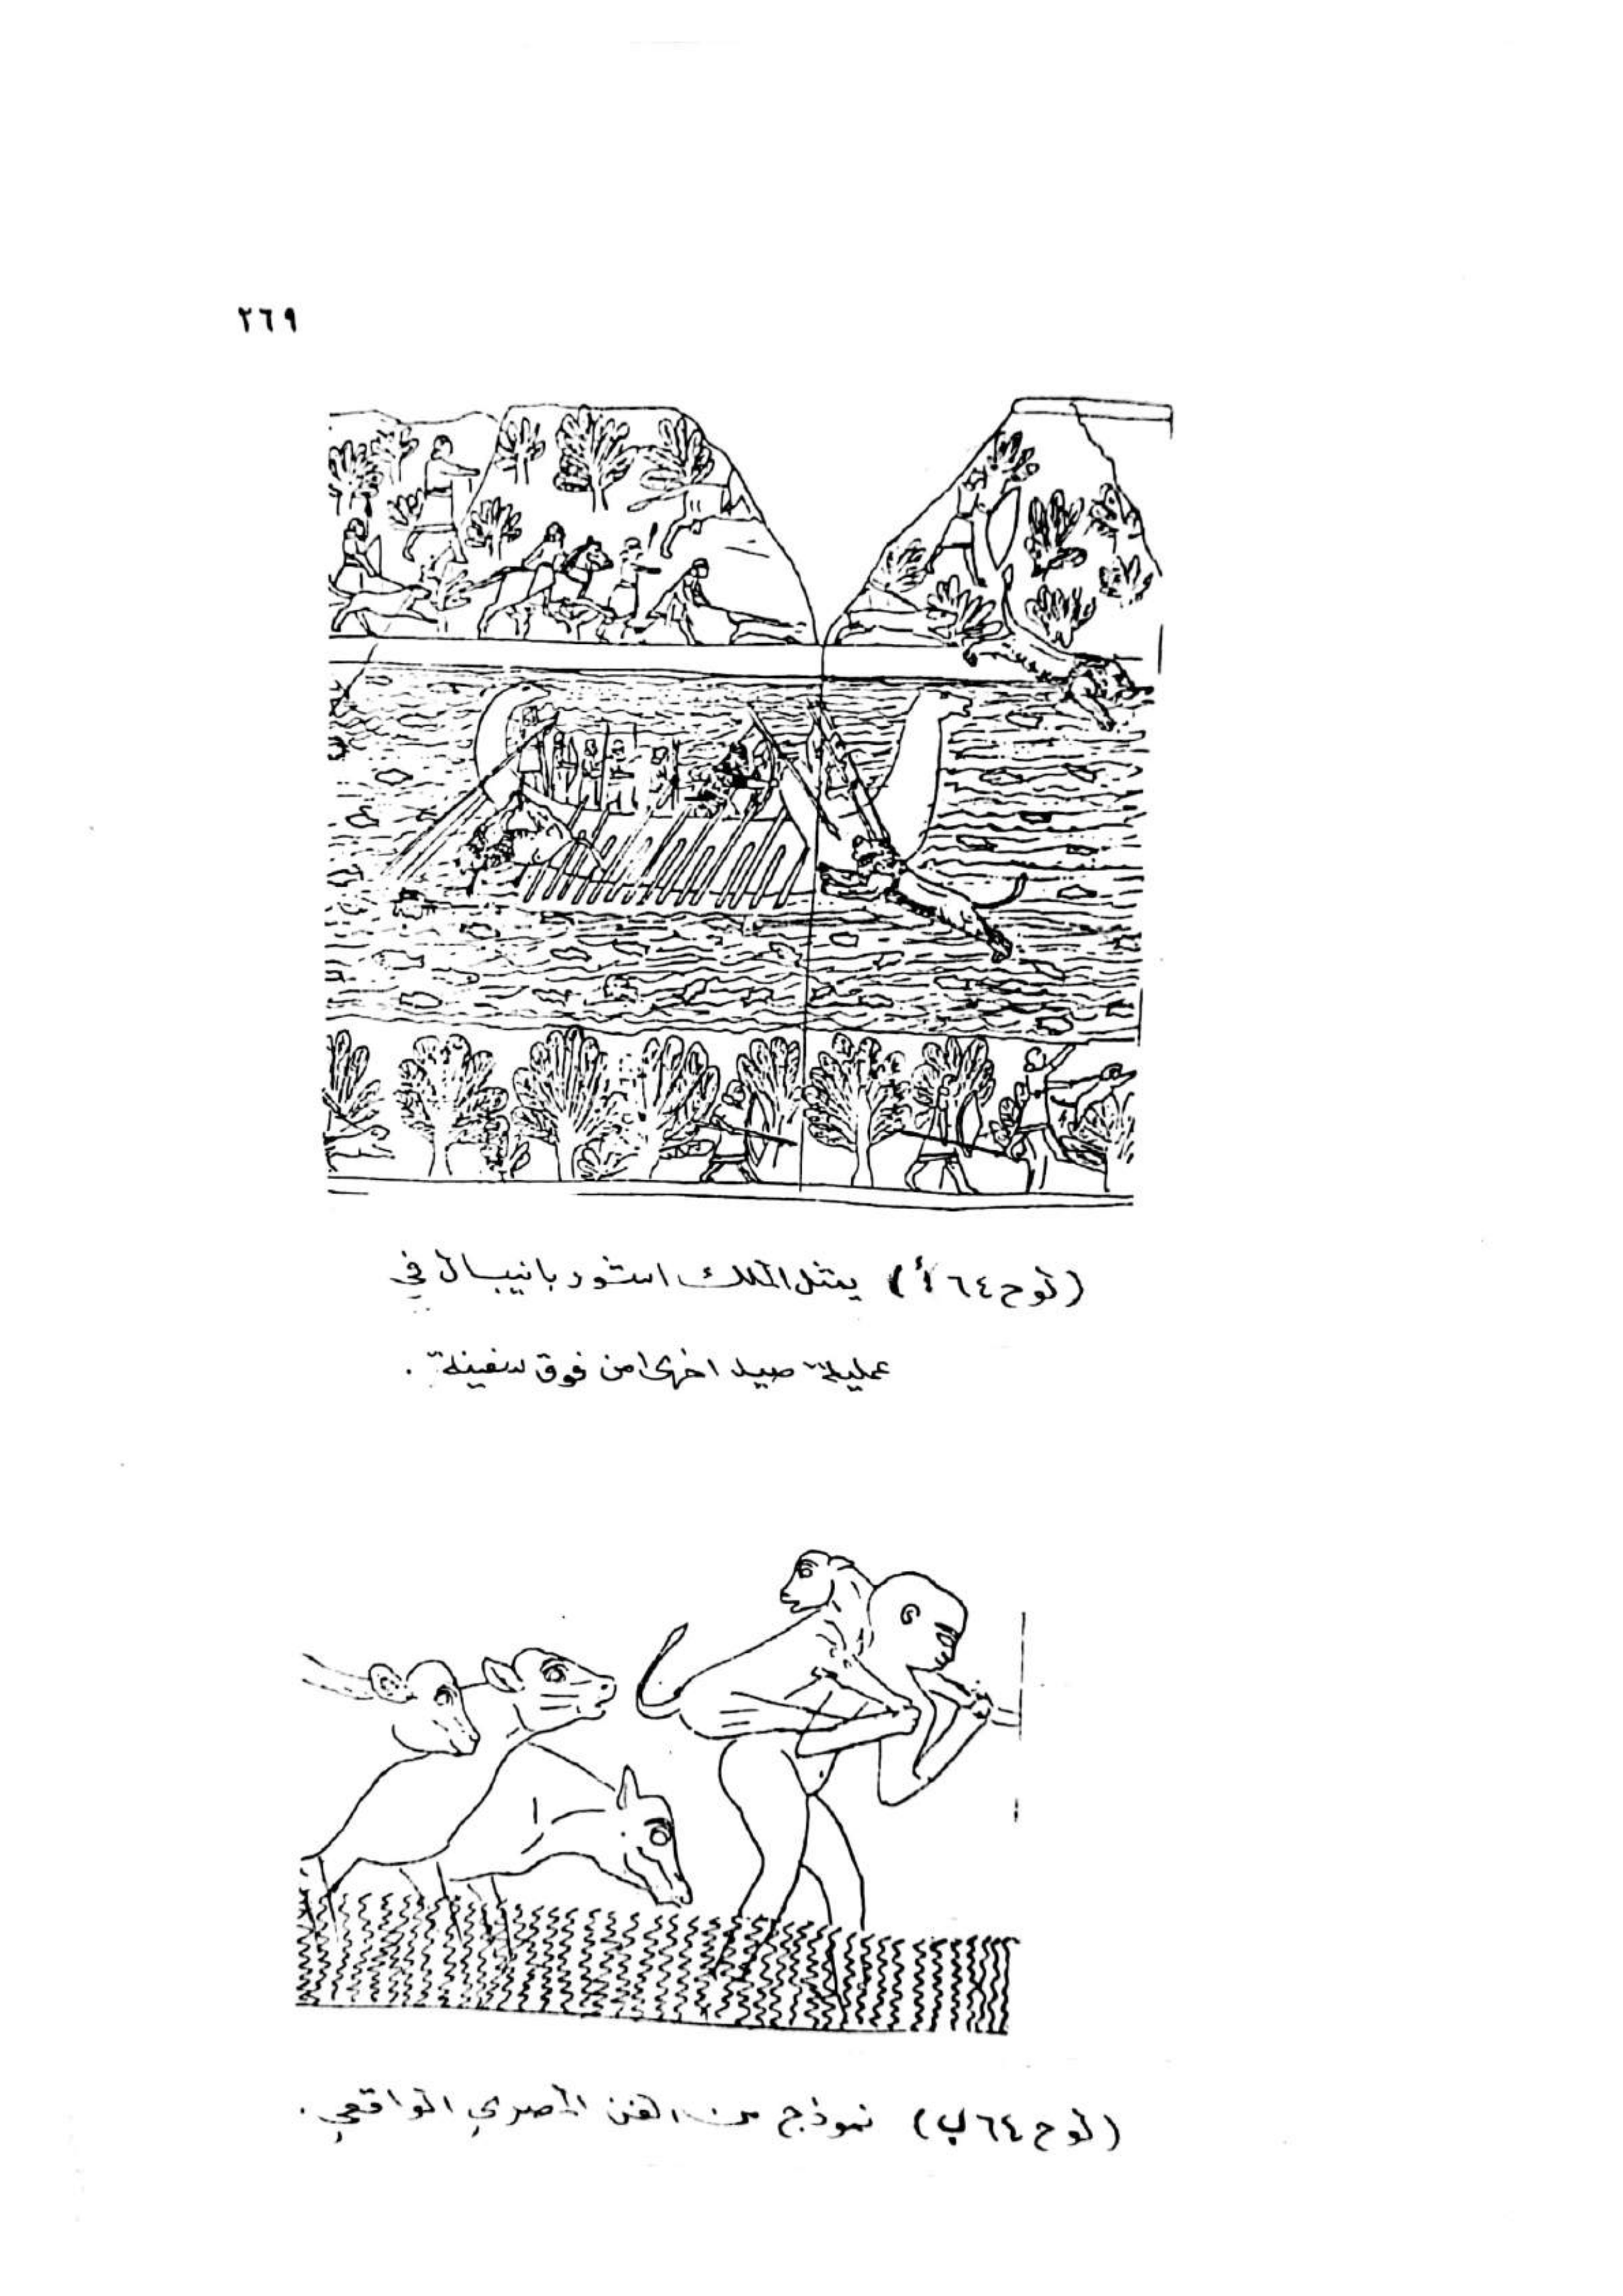 ٢٦٩
(لوح ٦٤ أ) يمثل الملك اشور بانيبال في
عملية صيد اخرى من فوق سفينة.
(لوح ٦٤ ب) نموذج من الفن المصري الواقعي.